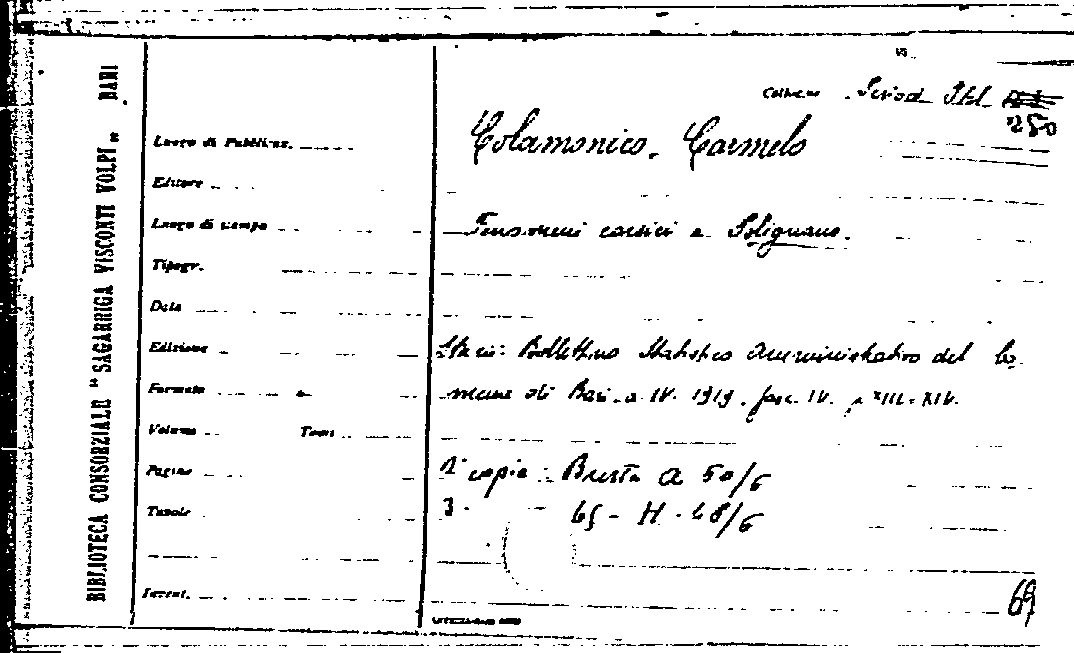 BIBLIOTECA CONSORZIALE "SAGARRIGA VISCONTI VOLPI" BARI
Collocaz.
250
Luogo di Pubblicaz.
Colamonico. Carmelo
Editore
Luogo di stampa
Fenomeni carsici a Polignano.
Tipogr.
Data
Edizione
Bollettino Statistico Amministrativo del Co-
Formato
mune di Bari. a IV. 1919. fasc. IV. p XIII-XIV.
Volume Tomi
Pagine
2ª copia: Busta A 50/6
Tavole
3. 65 - H - 48/6
69